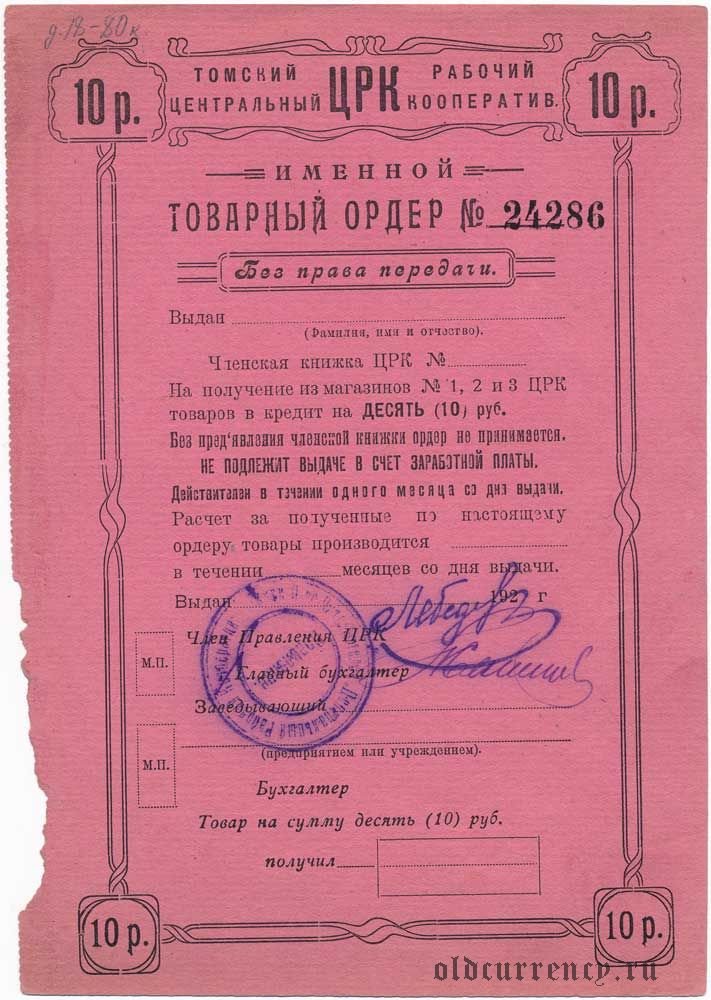 д.18-80к
10 р.
ТОМСКИЙ ЦРК РАБОЧИЙ
ЦЕНТРАЛЬНЫЙ КООПЕРАТИВ.
10 р.
ИМЕННОЙ
ТОВАРНЫЙ ОРДЕР № 24286
Без права передачи.
Выдан
(Фамилия, имя и отчество).
Членская книжка ЦРК №
На получение из магазинов № 1, 2 и 3 ЦРК
товаров в кредит на ДЕСЯТЬ (10) руб.
Без пред'явления членской книжки ордер не принимается.
НЕ ПОДЛЕЖИТ ВЫДАЧЕ В СЧЕТ ЗАРАБОТНОЙ ПЛАТЫ.
Действителен в течении одного месяца со дня выдачи.
Расчет за полученные по настоящему
ордеру товары производится
в течении месяцев со дня выдачи.
Выдан 192 г
Член Правления ЦРК
М.П.
Главный бухгалтер
Заведывающий
(предприятием или учреждением).
М.П.
Бухгалтер
Товар на сумму десять (10) руб.
получил
10 р.
10 р.
oldcurrency.ru